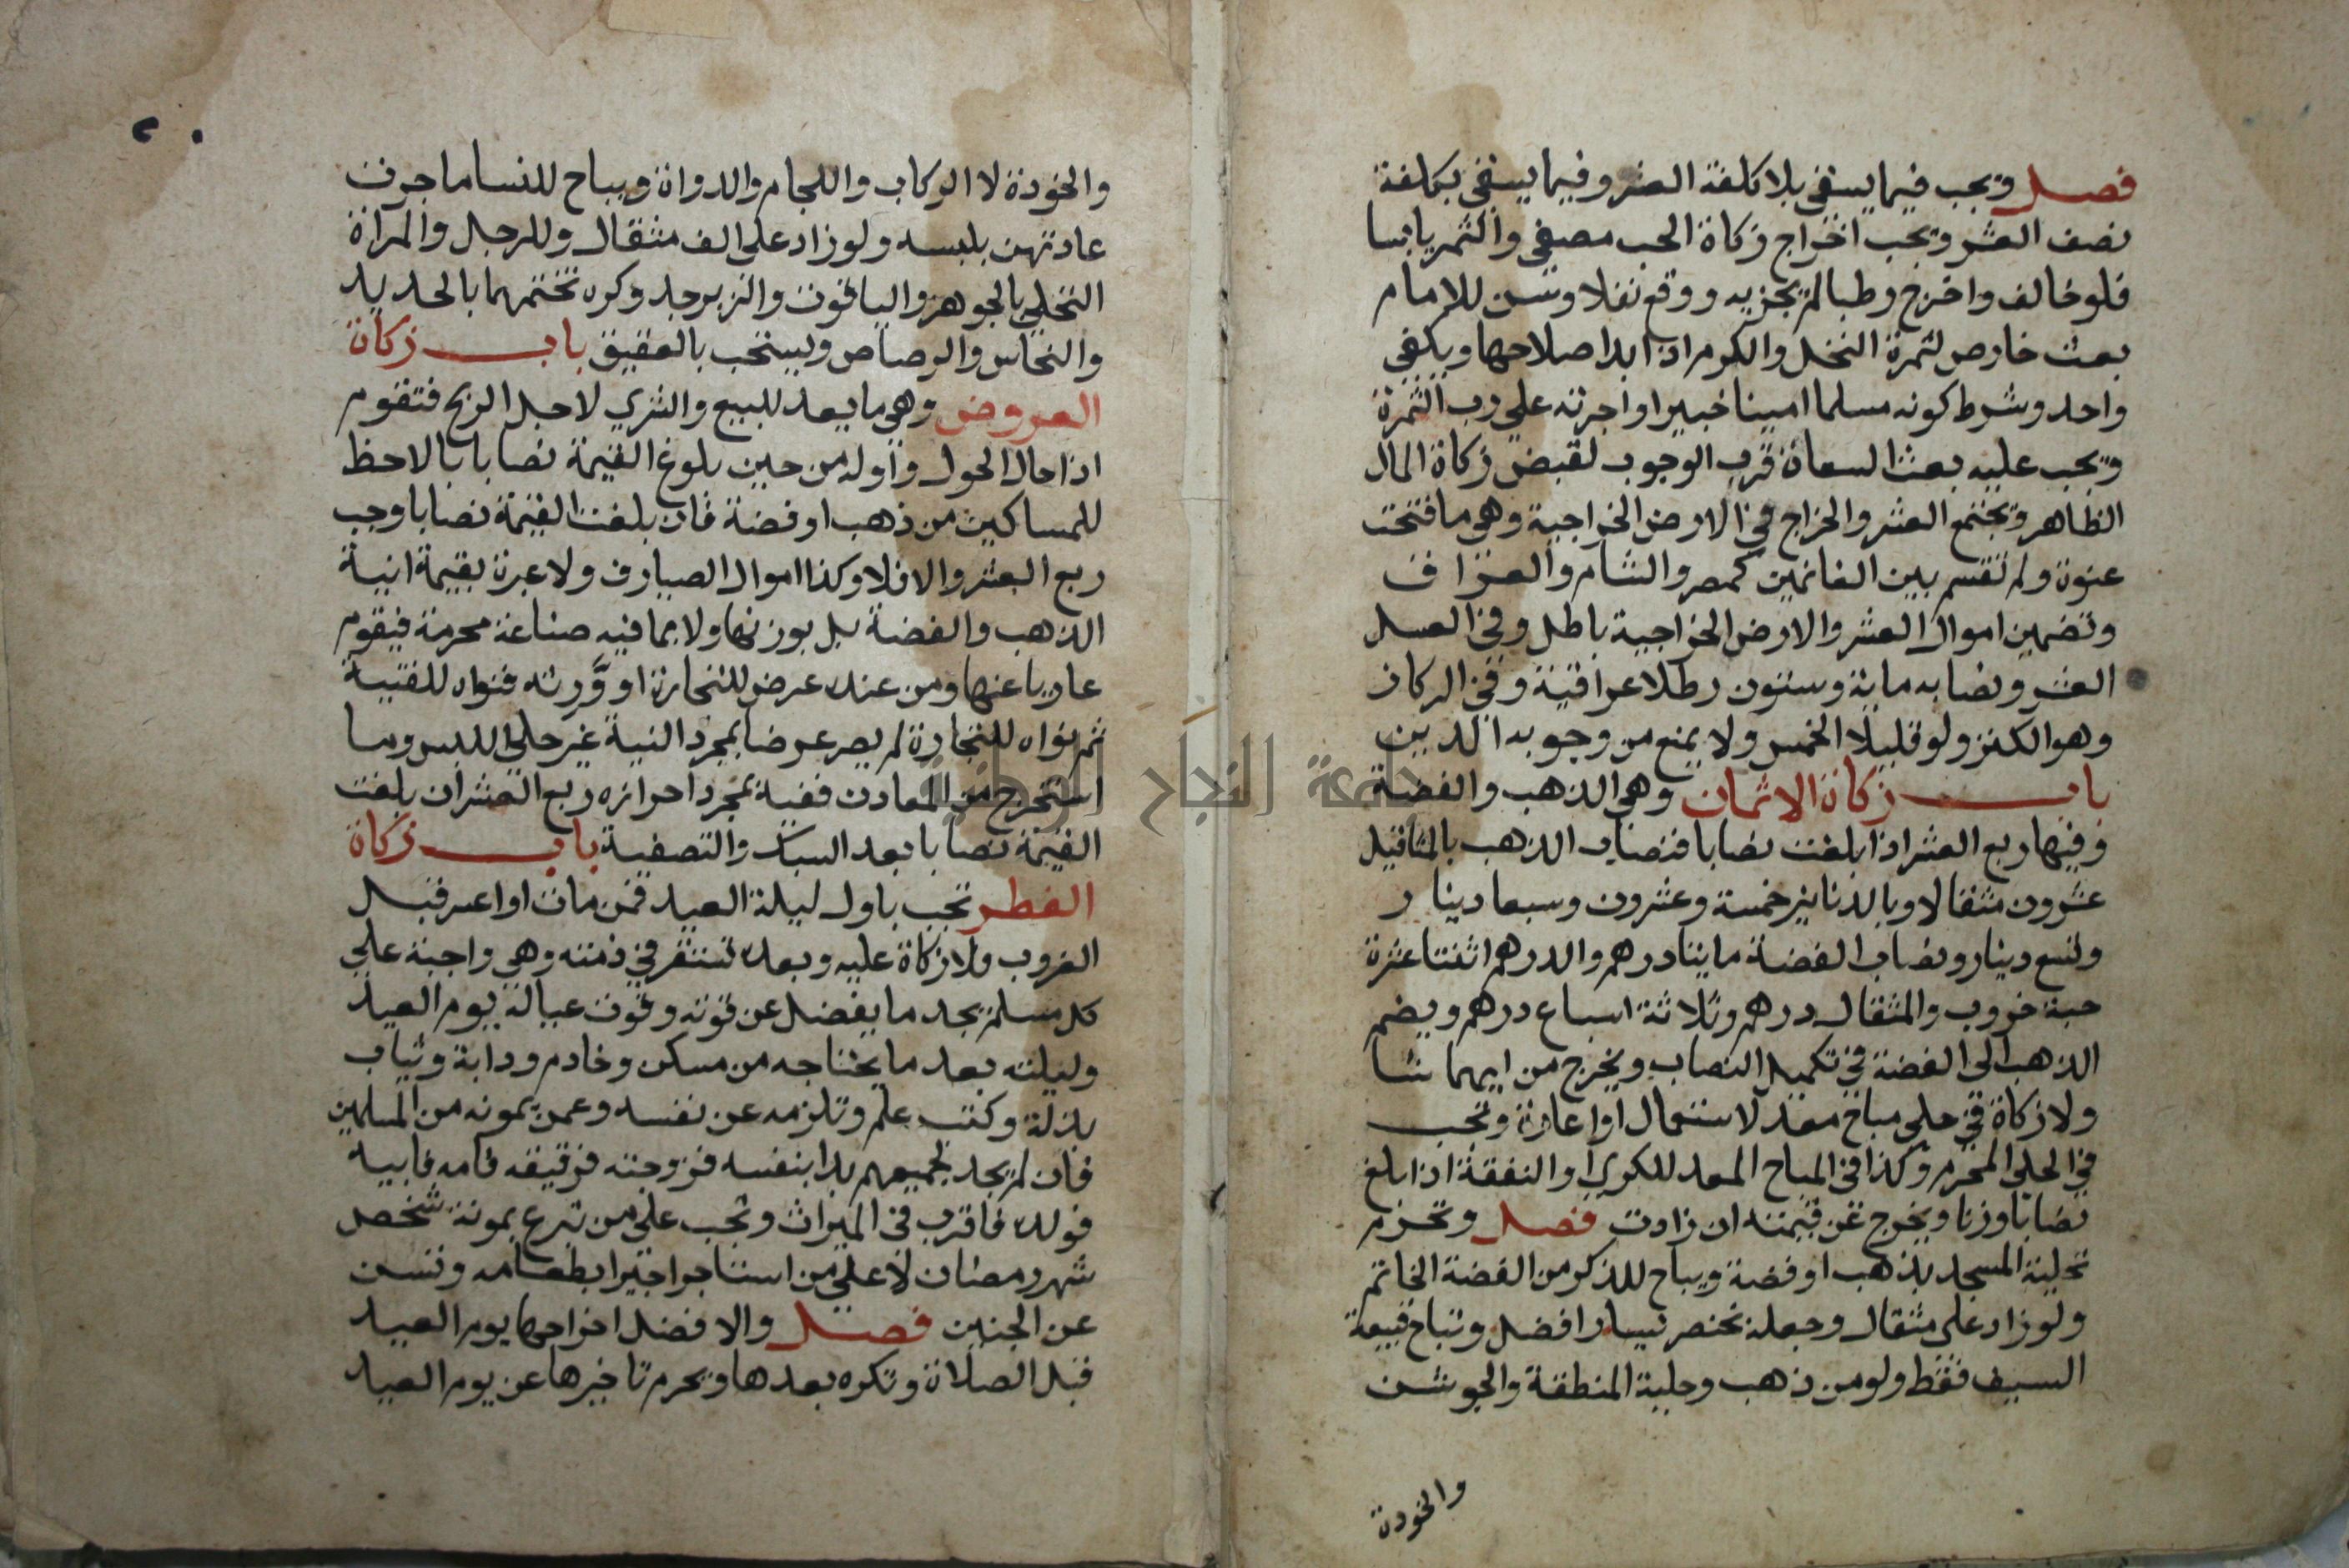 فصل ويجب فيما يسقى بلا كلفة العشر وفيما يسقى بكلفة
نصف العشر ويجب اخراج زكاة الحب مصفى والثمر يابسا
فلو خالف واخرج رطبا لم يجزيه ووقع نفلا وسن للامام
بعث خارص لثمرة النخل والكرم اذا بدا صلاحها ويكفي
واحد وشرط كونه مسلما امينا خبيرا واجرته على رب الثمرة
ويجب عليه بعث السعاة قرب الوجوب لقبض زكاة المال
الظاهر ويجتمع العشر والخراج في الارض الخراجية وهي ما فتحت
عنوة ولم تقسم بين الغانمين كمصر والشام والعراق
وتضمين اموال العشر والارض الخراجية باطل وفي العسل
العشر ونصابه ماية وستون رطلا عراقية وفي الركاز
وهو الكنز ولو قليلا الخمس ولا يمنع من وجوبه الدين
باب زكاة الاثمان وهي الذهب والفضة
وفيها ربع العشر اذا بلغت نصابا فنصاب الذهب بالمثاقيل
عشرون مثقالا وبالدنانير خمسة وعشرون وسبعا دينار
وتسع دينار ونصاب الفضة مايتا درهم والدرهم اثنتا عشرة
حبة خروب والمثقال درهم وثلاثة اسباع درهم ويضم
الذهب الى الفضة في تكميل النصاب ويخرج من ايهما شا
ولا زكاة في حلي مباح معد لاستعمال او اعارة وتجب
في الحلي المحرم وكذا في المباح المعد للكري او النفقة اذا بلغ
نصابا وزنا ويخرج عن قيمته ان زادت فصل وتحرم
تحلية المسجد بذهب او فضة ويباح للذكر من الفضة الخاتم
ولو زاد على مثقال وجعله بخنصر يسار افضل وتباح قبيعة
السيف فقط ولو من ذهب وحلية المنطقة والجوشن
والخودة
والخودة لا الركاب واللجام والدواة ويباح للنسا ما جرت
عادتهن بلبسه ولو زاد على الف مثقال وللرجل والمراة
التحلي بالجوهر والياقوت والزبرجد وكره تختمهما بالحديد
والنحاس والرصاص ويستحب بالعقيق باب زكاة
العروض وهي ما يعد للبيع والشري لاجل الربح فتقوم
اذا حال الحول واوله من حين بلوغ القيمة نصابا بالاحظ
للمساكين من ذهب او فضة فان بلغت القيمة نصابا وجب
ربع العشر والا فلا وكذا اموال الصيارف ولا عبرة بقيمة انية
الذهب والفضة بل بوزنها ولا بما فيه صناعة محرمة فيقوم
عاريا عنها ومن عنده عرض للتجارة او ورثه فنواه للقنية
ثم نواه للتجارة لم يصر عرضا بمجرد النية غير حلي اللبس وما
استخرج من المعادن ففيه بمجرد احرازه ربع العشر ان بلغت
القيمة نصابا بعد السبك والتصفية باب زكاة
الفطر تجب باول ليلة العيد فمن مات او اعسر قبل
الغروب فلا زكاة عليه وبعده تستقر في ذمته وهي واجبة على
كل مسلم يجد ما يفضل عن قوته وقوت عياله يوم العيد
وليلته بعد ما يحتاجه من مسكن وخادم ودابة وثياب
بذلة وكتب علم وتلزمه عن نفسه وعمن يمونه من المسلمين
فان لم يجد لجميعهم بدا بنفسه فزوجته فرقيقه فامه فابيه
فولده فاقرب في الميراث وتجب على من تبرع بمونة شخص
شهر رمضان لا على من استاجر اجيرا بطعامه وتسن
عن الجنين فصل والافضل اخراجها يوم العيد
قبل الصلاة وتكره بعدها ويحرم تاخيرها عن يوم العيد
جامعة النجاح الوطنية